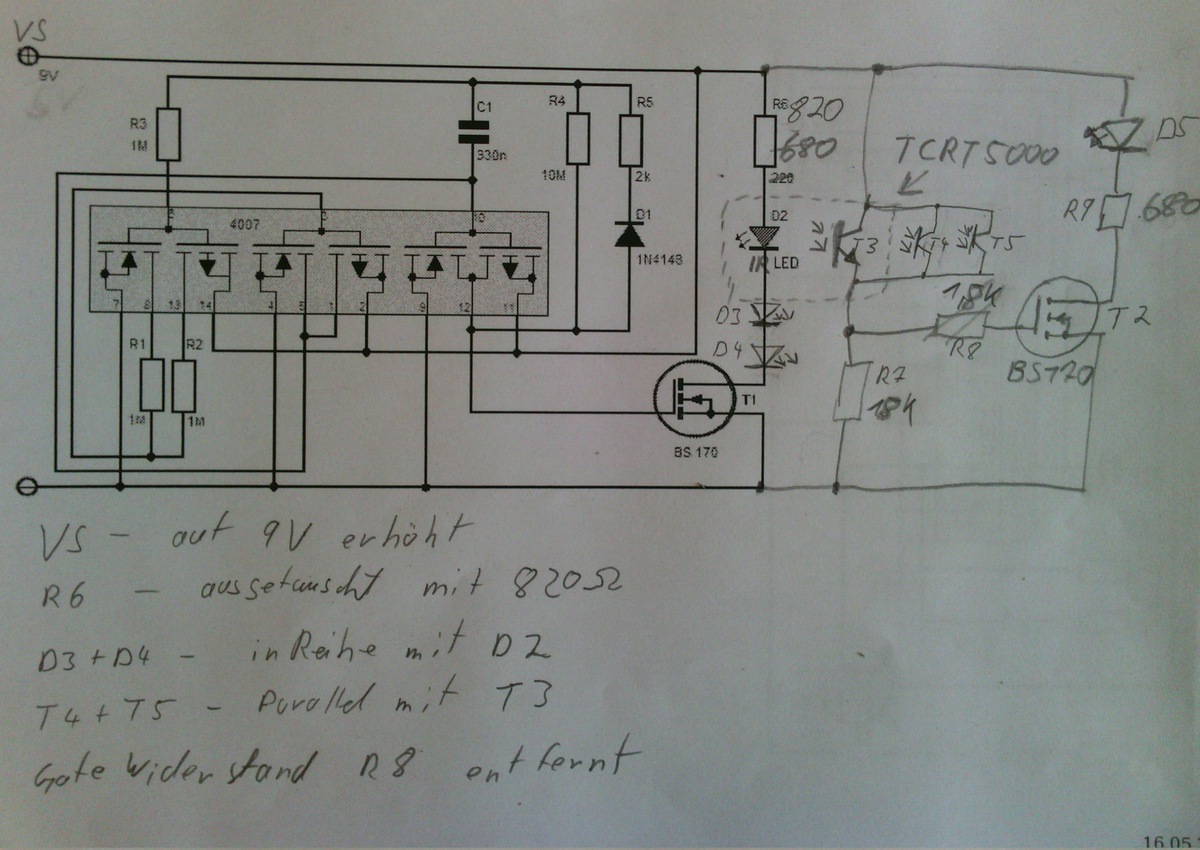 VS
9V
R3
1M
C1
330n
R4
10M
R5
2k
D1
1N4148
R6
820
680
220
TCRT5000
D5
R9
680
4007
6
3
10
7
8
13
14
4
5
1
2
9
12
11
D2
IR LED
T3
T4
T5
D3
D4
R1
1M
R2
1M
T1
BS 170
18K
R8
T2
BS170
R7
18K
VS – auf 9V erhöht
R6 – ausgetauscht mit 820Ω
D3+D4 – in Reihe mit D2
T4+T5 – Parallel mit T3
Gate Widerstand R8 entfernt
16.05.